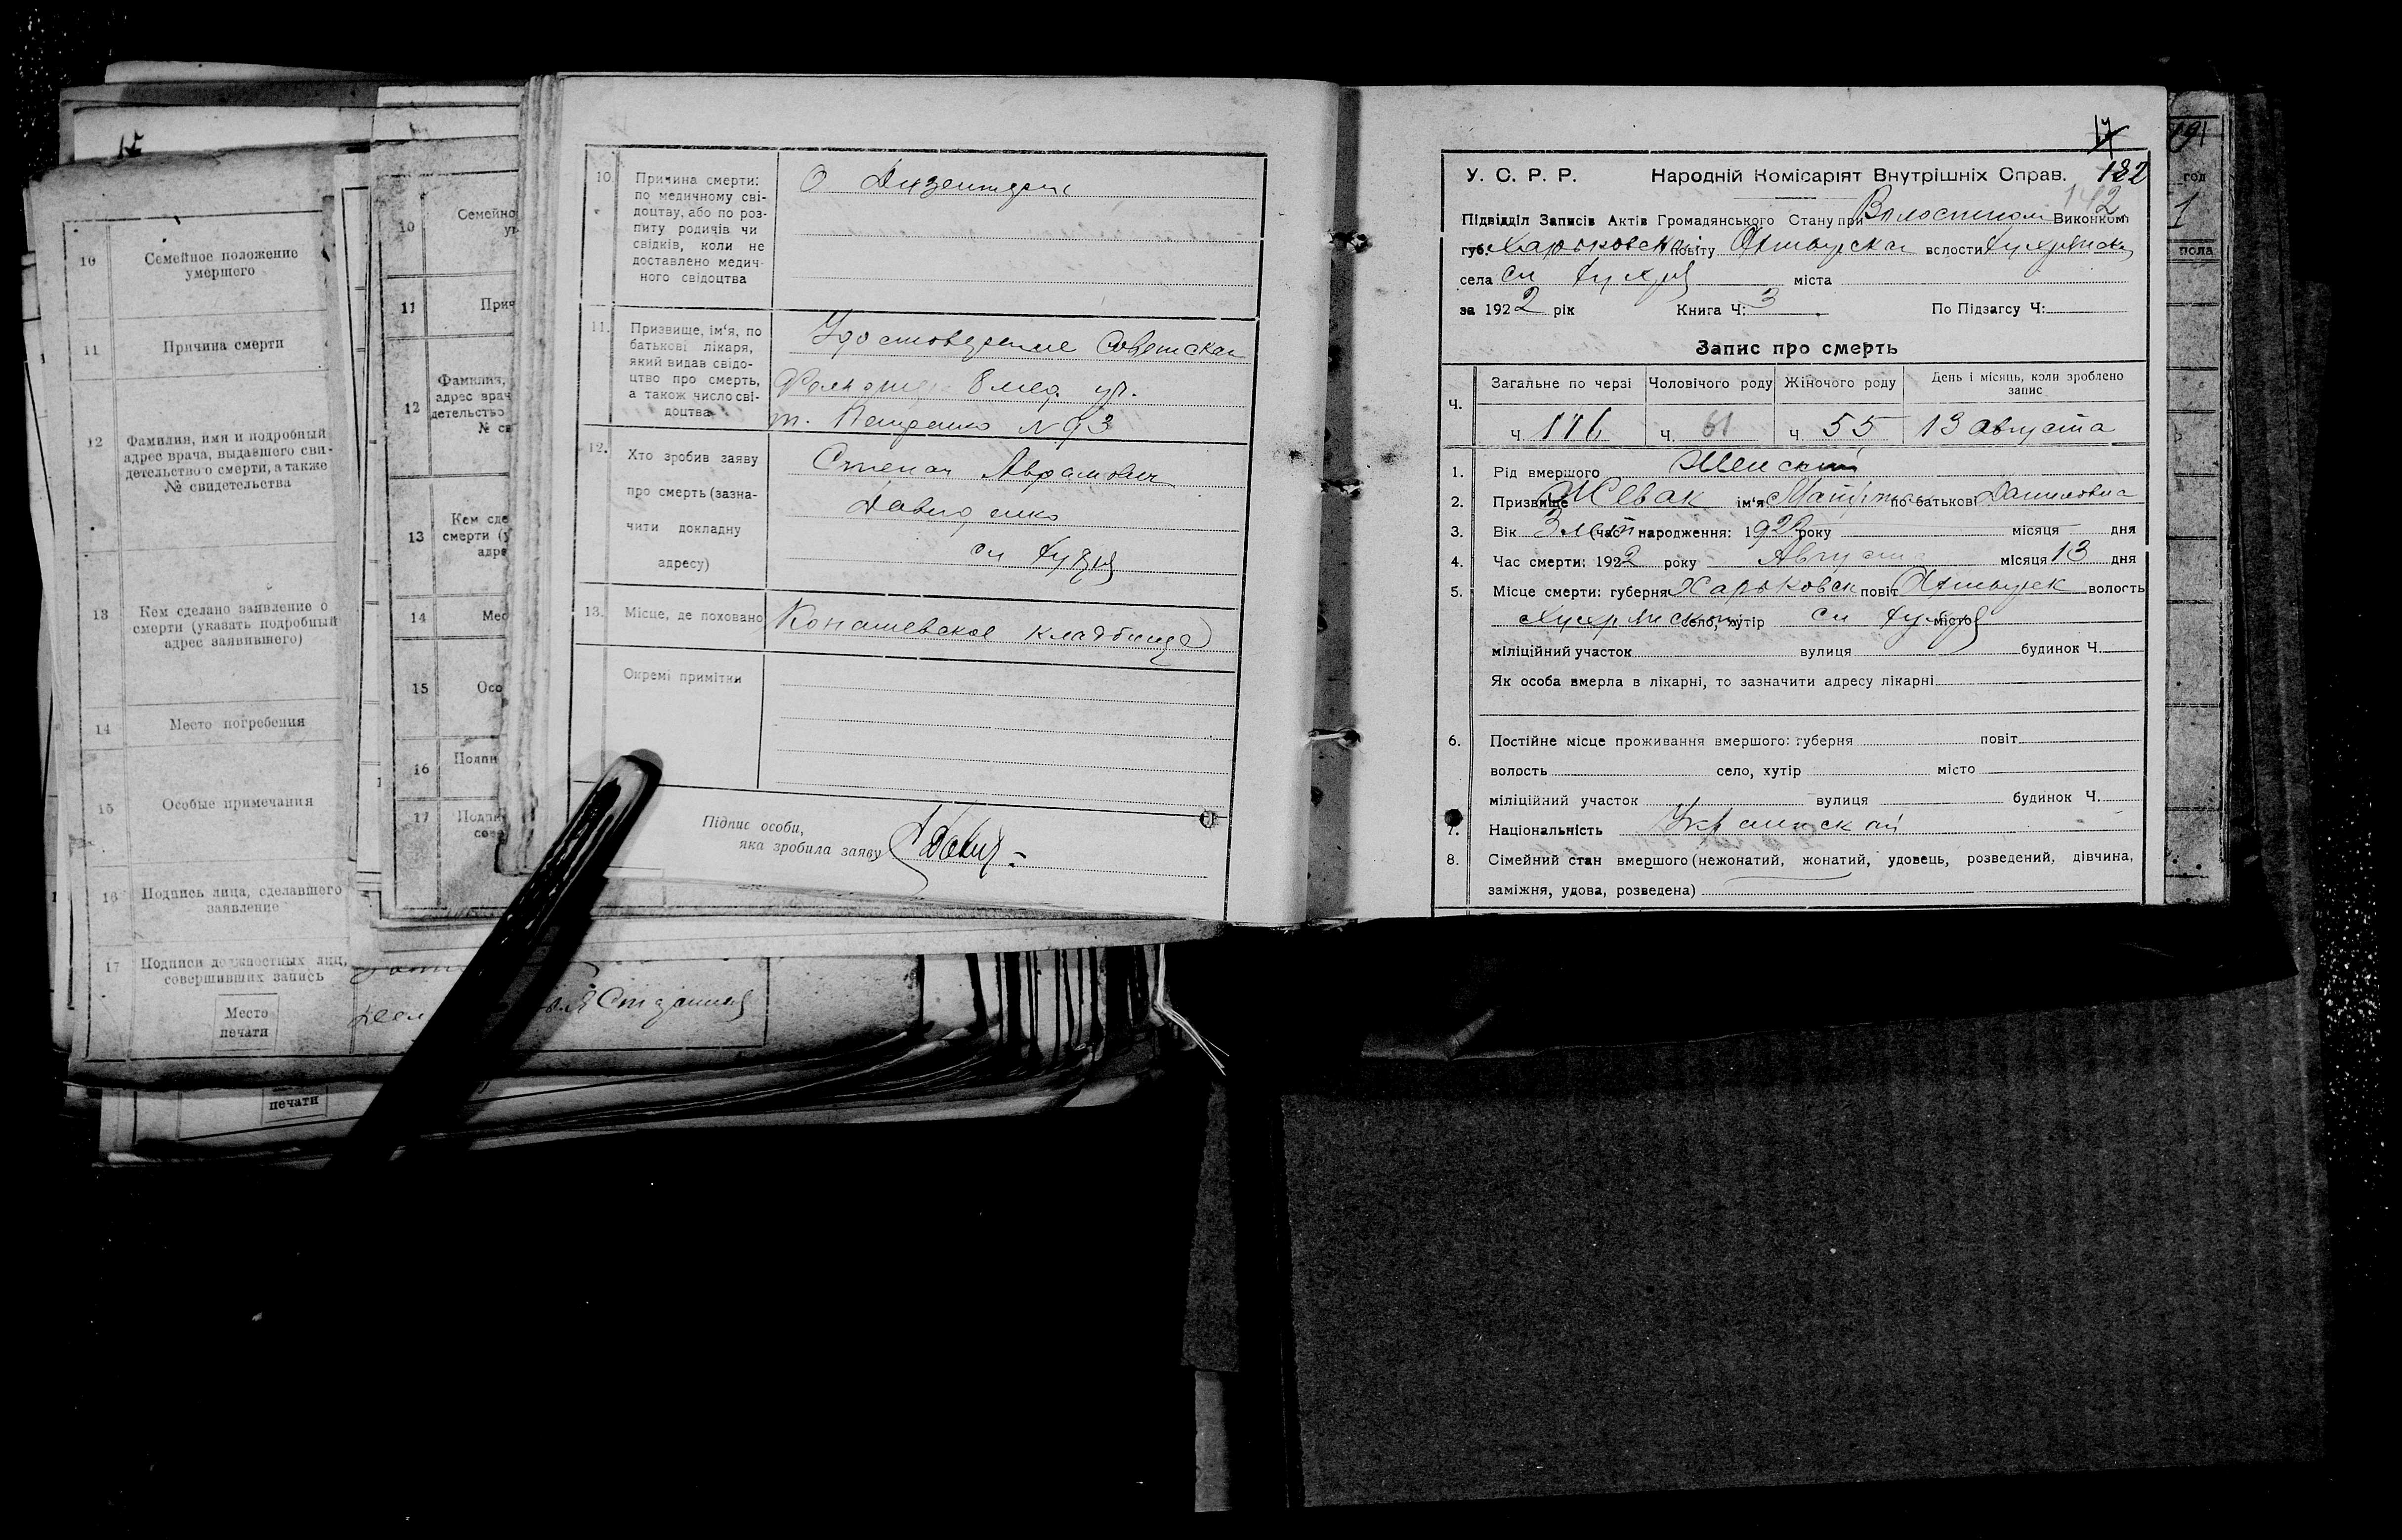 10
Семейное положение
умершего
11
Причина смерти
12
Фамилия, имя и подробный
адрес врача, выдавшего сви-
детельство о смерти, а также
№ свидетельства
13
Кем сделано заявление о
смерти (указать подробный
адрес заявившего)
14
Место погребения
15
Особые примечания
16
Подпись лица, сделавшего
заявление
17
Подписи должностных лиц,
совершивших запись
Место
печати
печати
10
Семейно
11
Прич
12
Фамилия,
адрес врач
детельство
№ св
13
Кем сде
смерти (у
адре
14
Мес
15
Осо
16
Подпи
17
Подпи
сове
10.
Причина смерти:
по медичному сві-
доцтву, або по роз-
питу родичів чи
свідків, коли не
доставлено медич-
ного свідоцтва
11.
Призвище, ім'я, по
батькові лікаря,
який видав свідо-
цтво про смерть,
а також число сві-
доцтва
Удостоверение Советская
т. Петренко № 93
12.
Хто зробив заяву
про смерть (зазна-
чити докладну
адресу)
Степан Аврамович
Давиденко
13.
Місце, де поховано
Конашевское кладбище
Окремі примітки
Підпис особи,
яка зробила заяву
17
У. С. Р. Р. Народній Комісаріят Внутрішніх Справ. 182
142
Підвідділ Записів Актів Громадянського Стану при Волостном Виконком
губ. Харьковская повіту Ахтырска волости
села сл міста
за 1922 рік Книга Ч: 3 По Підзагсу Ч:
Запис про смерть
Ч. Загальне по черзі Чоловічого роду Жіночого роду День і місяць, коли зроблено
запис
Ч. 116 Ч. 61 Ч. 55 13 августа
1. Рід вмершого Женский
2. Призвище Жевак ім'я по батькові Даниловна
3. Вік 3 лет (час народження: 192 року місяця дня
4. Час смерти: 1922 року Августа місяця 13 дня
5. Місце смерти: губерня Харьковск повіт Ахтырск волость
село, хутір сл місто
міліційний участок вулиця будинок Ч.
Як особа вмерла в лікарні, то зазначити адресу лікарні
6. Постійне місце проживання вмершого: губерня повіт
волость село, хутір місто
міліційний участок вулиця будинок Ч.
7. Національність Украинский
8. Сімейний стан вмершого (нежонатий, жонатий, удовець, розведений, дівчина,
заміжня, удова, розведена)
год
1
пола